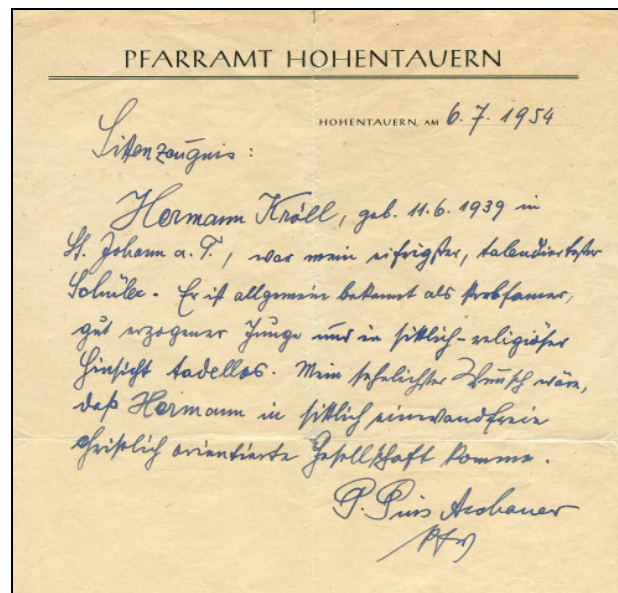 PFARRAMT HOHENTAUERN
HOHENTAUERN, AM 6.7.1954
Sittenzeugnis:
Hermann Kröll, geb. 11.6.1939 in
St. Johann a. T., war mein eifrigster, talendiertester
Schüler. Er ist allgemein bekannt als strebsamer,
gut erzogener Junge und in sittlich-religiöser
Hinsicht tadellos. Mein sehnlichster Wunsch wäre,
daß Hermann in sittlich einwandfreie
christlich orientierte Gesellschaft komme.
P. Pius Aschauer
Pfr